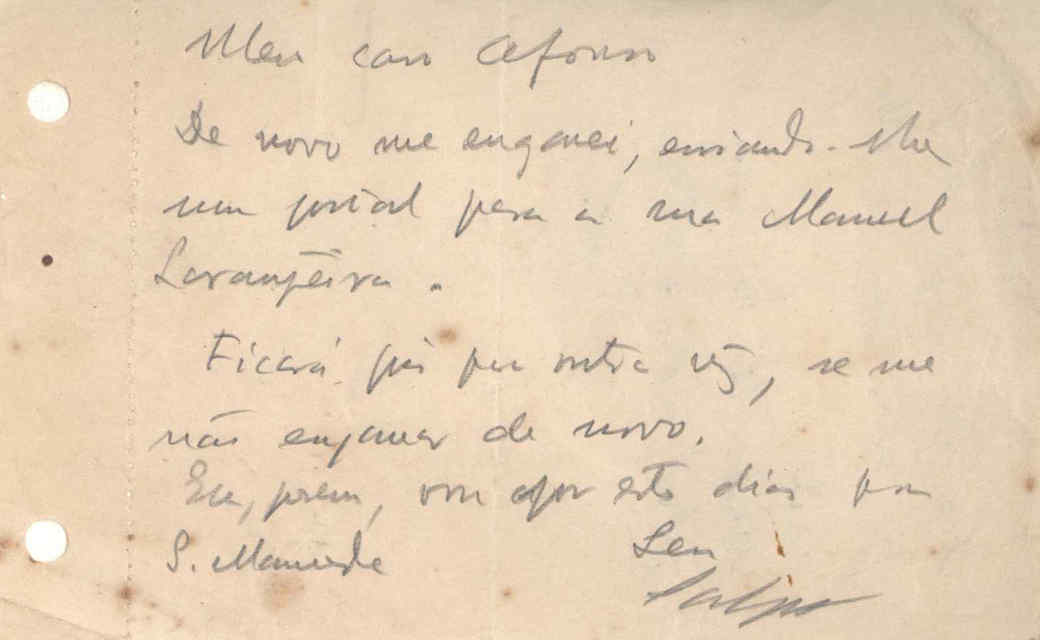 Meu caro Afonso
De novo me enganei, enviando-lhe
um postal para a rua Manuel
Laranjeira.
Ficará pois para outra vez, se me
não enganar de novo.
Eu, porem, vou estes dias para
S. Mamede Seu